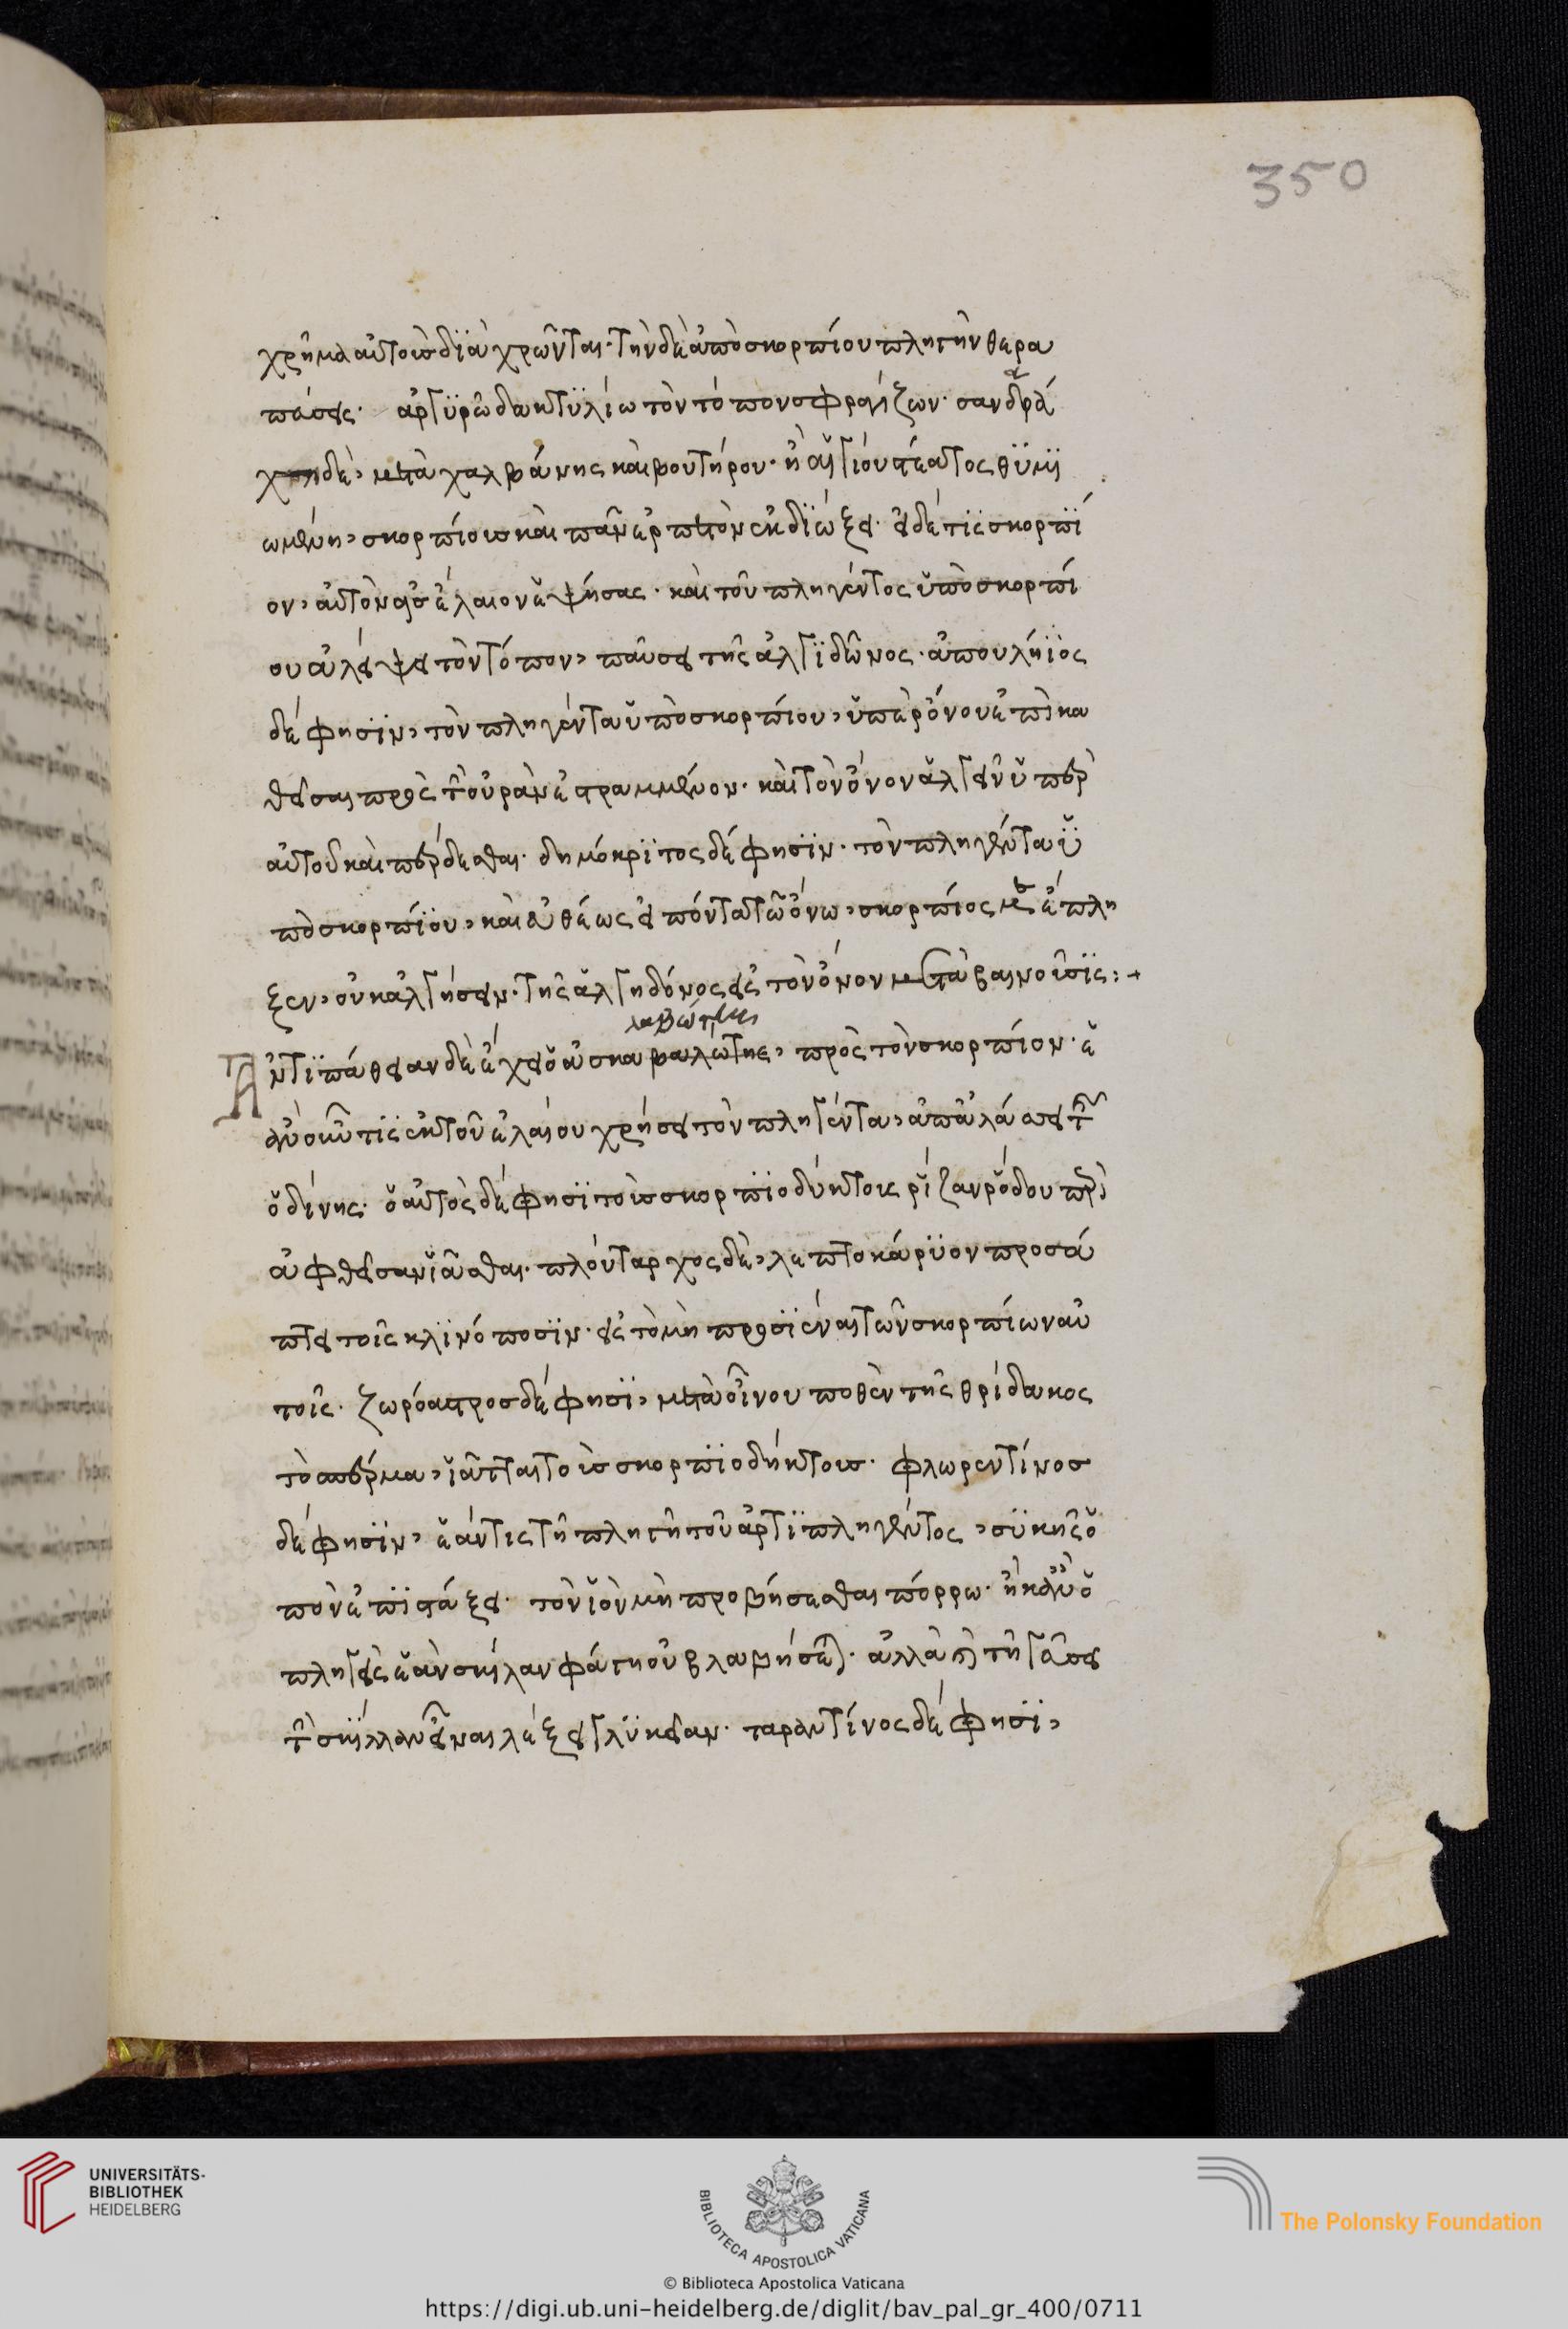 350
χρῆμα αὐτοῖς διαχρῶνται. τὴν δὲ ἀπὸ σκορπίου πληγὴν θερα
πεύσεις. ἀργυρῶ δακτυλίω τὸν τόπον σφραγίζων. σανδρά
χη δὲ, μετὰ χαλβάνης καὶ βουτήρου. ἢ αἰγίου στέατος θυμι
ωμένη, σκορπίους καὶ πᾶν ἑρπετὸν ἐκδιώξει. εἰ δέ τις σκορπί
ον, αὐτὸν εἰς ἔλαιον ἑψήσας. καὶ τοῦ πληγέντος ὑπὸ σκορπί
ου ἀλείψει τὸν τόπον, παύσει τῆς ἀλγιδῶνος. ἀπουλήϊος
δέ φησϊν, τὸν πληγέντα ὑπὸ σκορπίου, ὑπὲρ ὄνου ἐπὶ κα
θεῖσαι πρὸς τὸ οὐρὰν ἐστραμμένον. καὶ τὸν ὄνον ἀλγεῖν ὑπὲρ
αὐτοῦ καὶ πέρδεσθαι. δημόκριτος δέ φησϊν. τὸν πληγέντα ὑ
πὸ σκορπίου, καὶ εὐθέως εἰπόντα τῶ ὄνω, σκορπίος με ἔπλη
ξεν, οὐκ ἀλγήσειν. τῆς ἀλγηδόνος εἰς τὸν ὄνον μεταβαινούσϊς:+
λαβώτης
Ἀντιπάθειαν δὲ ἔχει ὁ ἀσκαβαλώτης, πρὸς τὸν σκορπίον. ἐ
ὰν οὖν τις ἐκ τοῦ ἐλαίου χρήσει τὸν πληγέντα, ἀπαλάσσει τῆς
ὀδύνης. ὁ αὐτὸς δέ φησϊ τοὺς σκορπϊοδήκτοις ῥίζαν ῥόδου περι
αφθεῖσαν ἰᾶσθαι. πλούταρχος δὲ, λεπτοκάρυον προσά
πτει τοῖς κλινόποσϊν. εἰς τὸ μὴ προσϊέναι τῶν σκορπίων αὐ
τοῖς. ζωρόαστρος δέ φησϊ, μετὰ οἴνου ποθὲν τῆς θρίδακος
τὸ σπέρμα, ἰᾶται τοὺς σκορπϊοδήκτους. φλωρεντίνος
δέ φησϊν, ἐάν τις τῆ πληγῆ τοῦ ἀρτι πληγέντος, συκῆς ὀ
πὸν ἐπιστάξει. τὸν ἰὸν μὴ προβήσεσθαι πόρρω. ἢ κἂν ὁ
πληγεὶς ἐὰν σκίλαν φάγη οὐ βλαβήσεται. ἀλλὰ καὶ τῆ γεύσει
τὸ σκίλλαν εἶναι λέξει γλυκεῖαν. ταραντίνος δέ φησϊ,
UNIVERSITÄTS-
BIBLIOTHEK
HEIDELBERG
BIBLIOTECA APOSTOLICA VATICANA
The Polonsky Foundation
© Biblioteca Apostolica Vaticana
https://digi.ub.uni-heidelberg.de/diglit/bav_pal_gr_400/0711